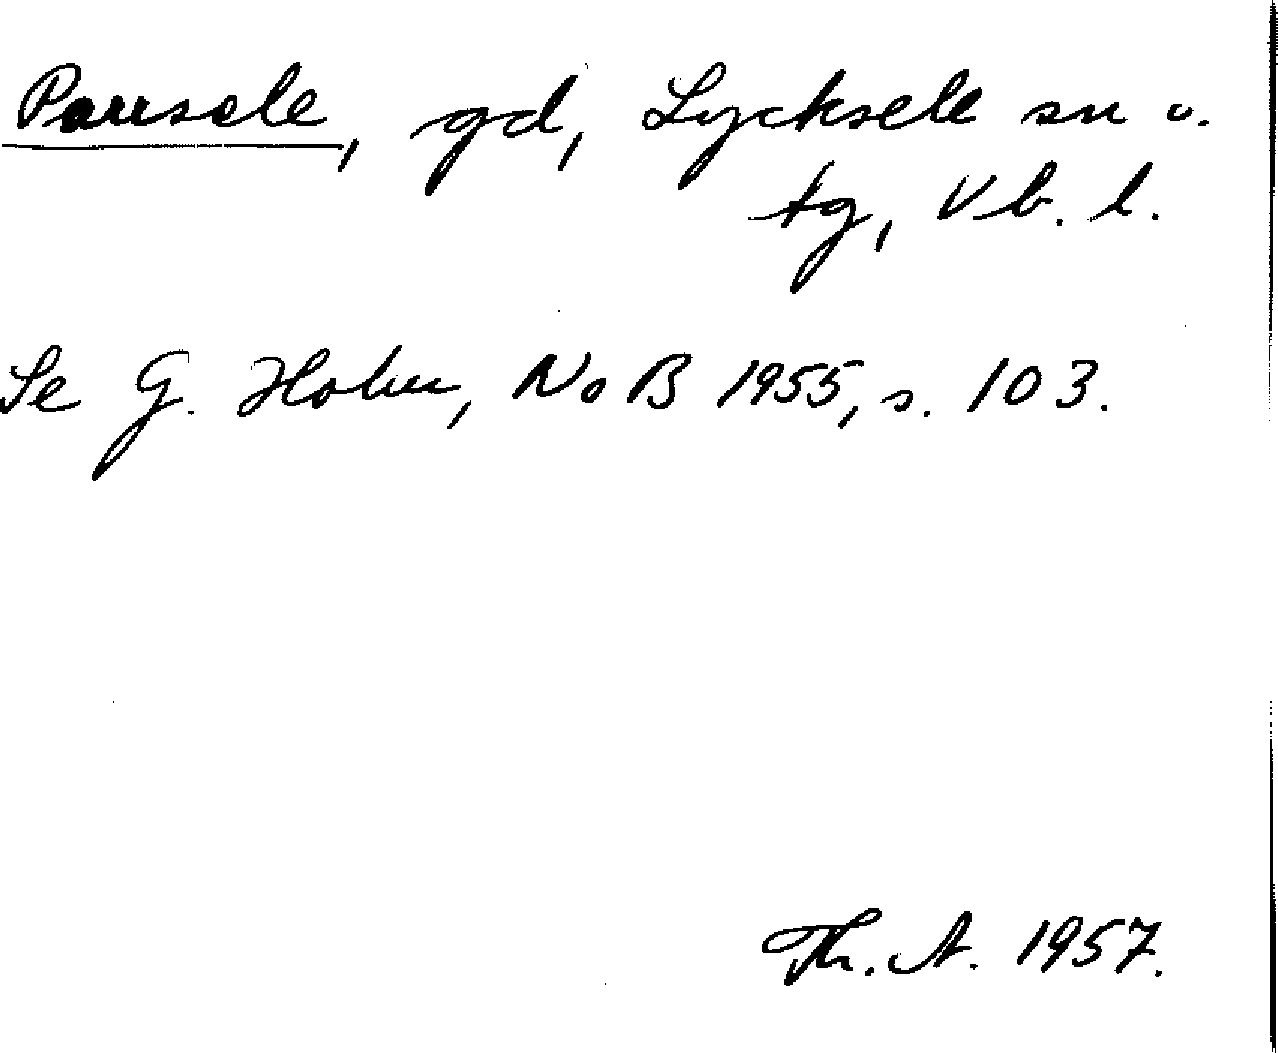 Pausele, gd, Lycksele sn o.
tg, Vb. l.
Se G. Holm, NoB 1955, s. 103.
Th. A. 1957.